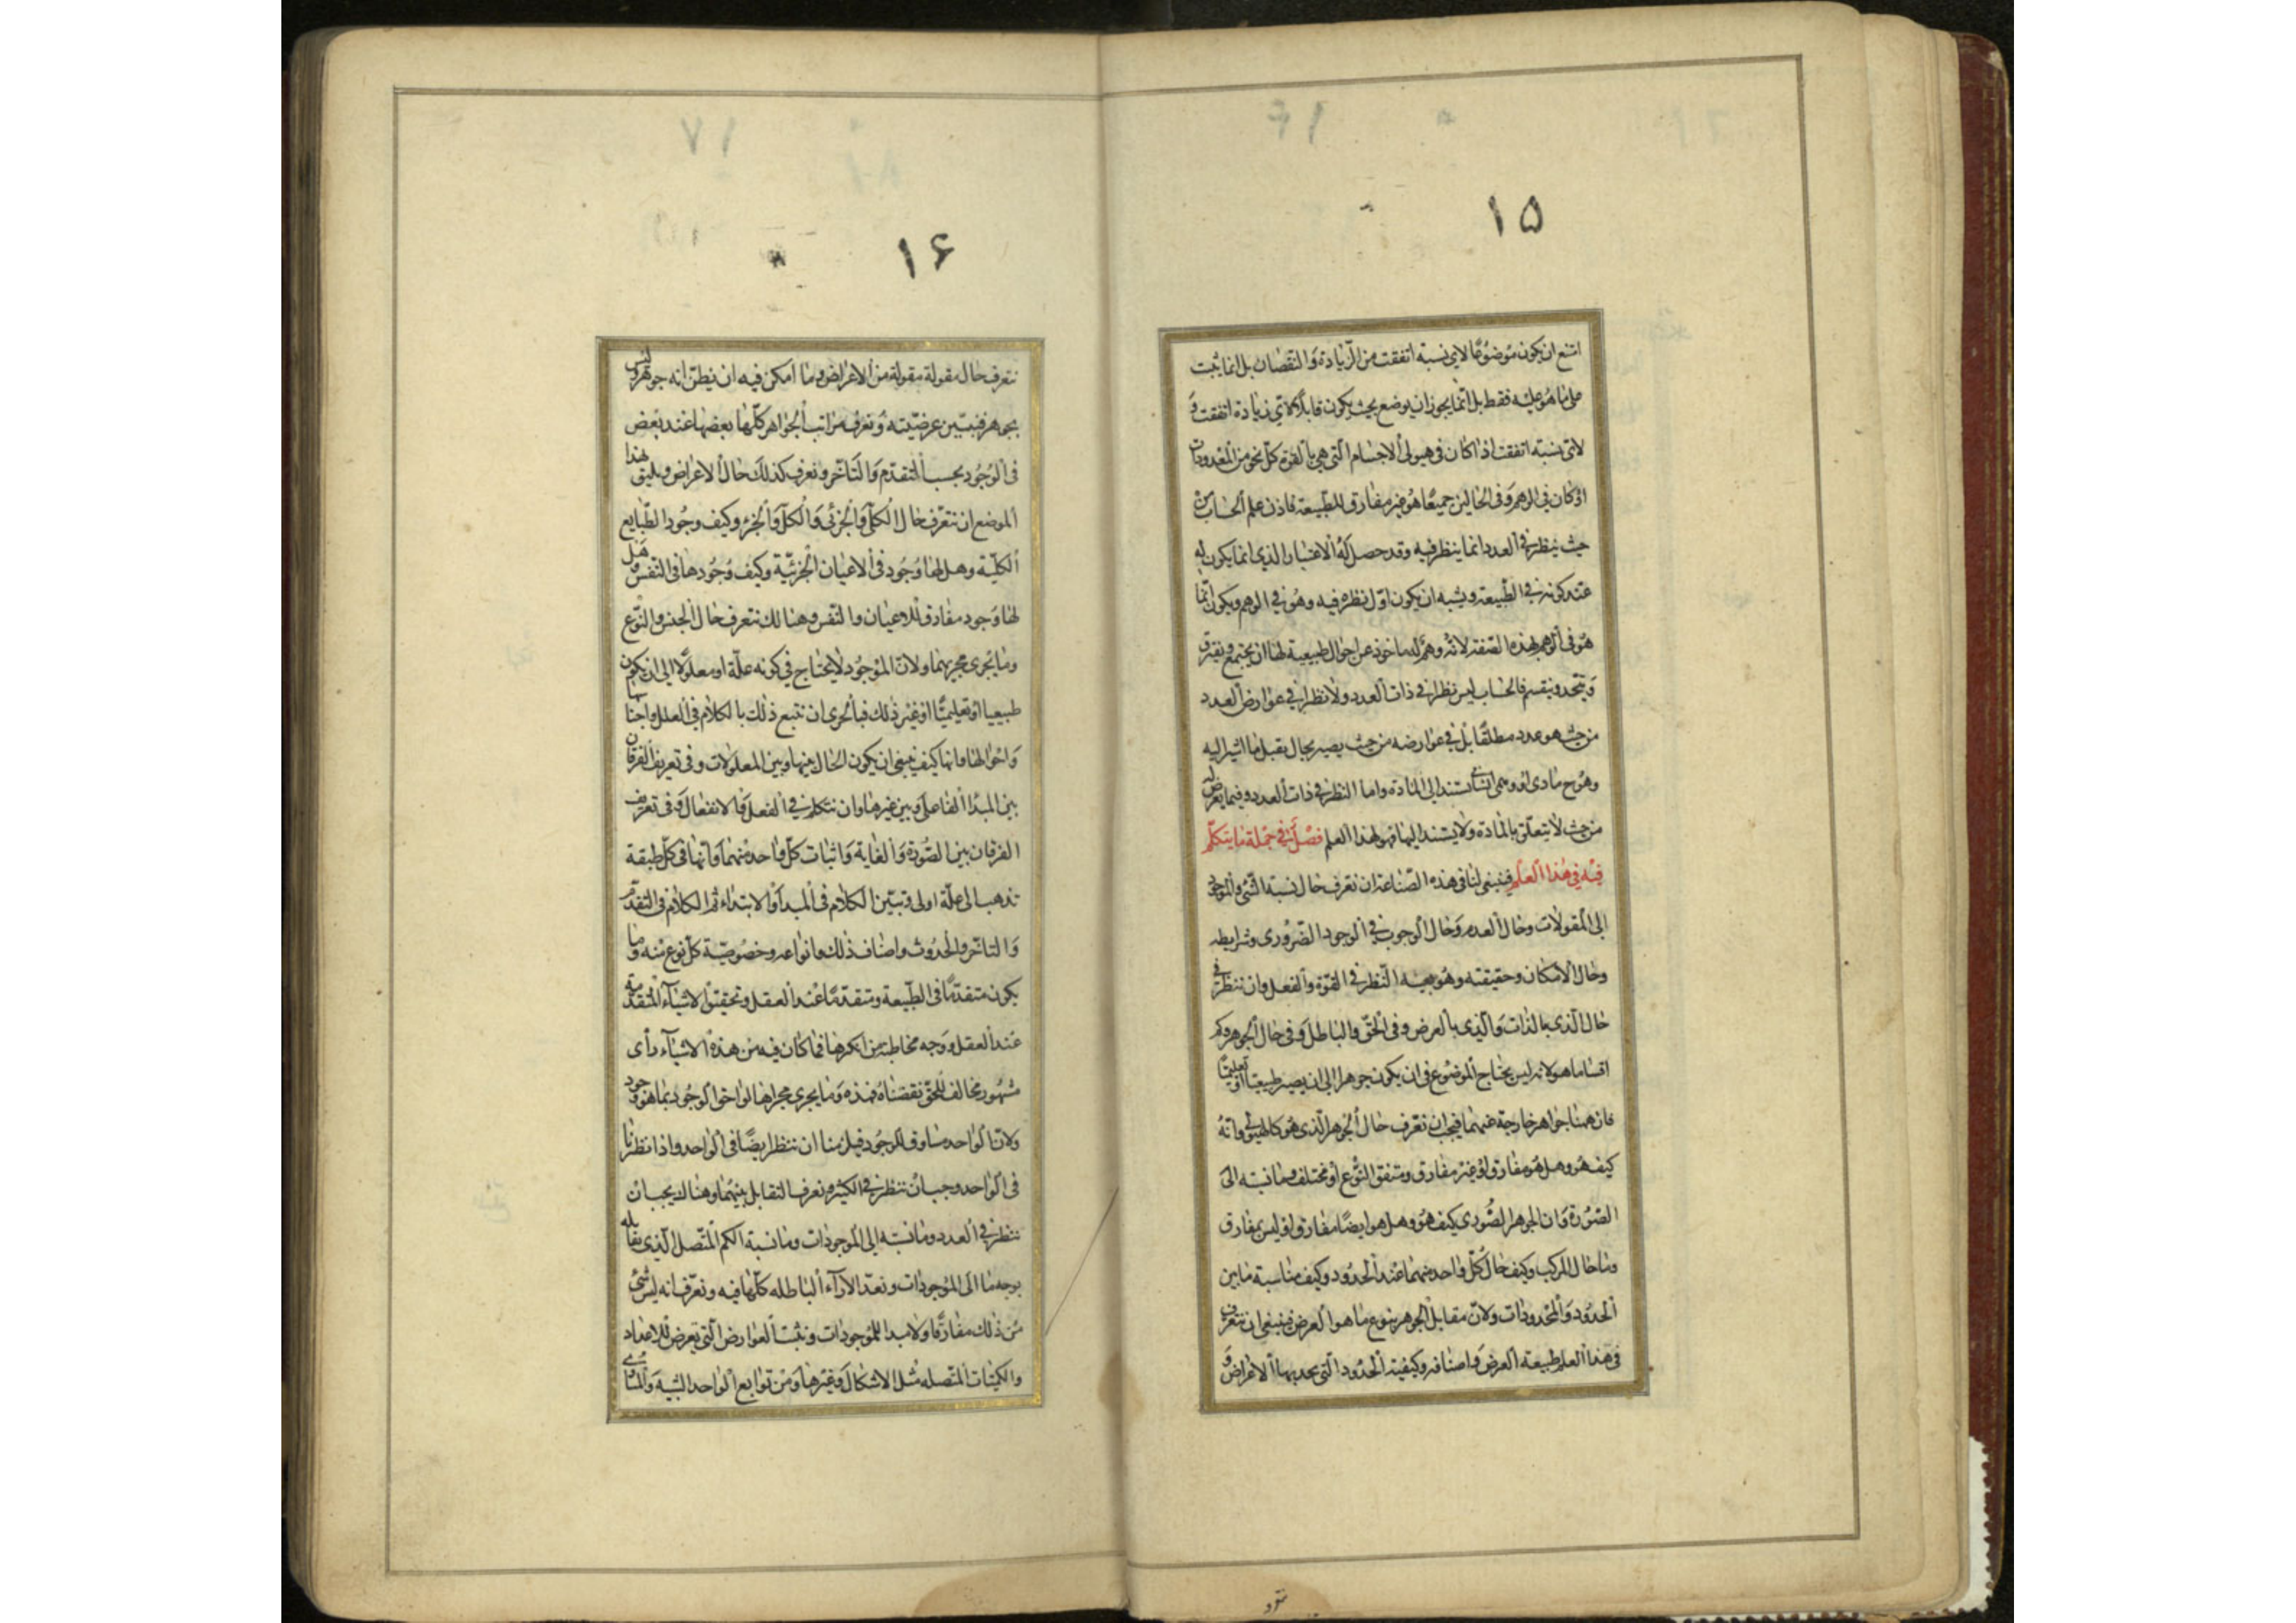 ١٥
امتنع ان يكون موضوعًا لاى نسبة اتفقت من الزيادة و النقصان بل انما يثبت
على ما هو عليه فقط بل انما يجوز ان يوضع بحيث يكون قابلا لاى زيادة اتفقت و
لاى نسبة اتفقت اذا كان فى هيولى الاجسام التى هى بالقوة كل نحو من المعدودات
او كان فى الوهم و فى الحالين جميعًا هو غير مفارق للطبيعة فاذن علم الحساب من
حيث ينظر فى العدد انما ينظر فيه وقد حصل له الاعتبار الذى انما يكون له
عند كونه فى الطبيعة ويشبه ان يكون اوّل نظره فيه وهو فى الوهم ويكون انما
هو فى الوهم بهذه الصفة لانه وهم له ماخوذ عن احوال طبيعية لها ان يجتمع ويفترق
و يتحد وينقسم فالحساب ليس نظرا فى ذات العدد ولا نظرا فى عوارض العدد
من حيث هو عدد مطلقًا بل فى عوارضه من حيث يصير بحال يقبل ما اشير اليه
وهو ح مادى او وهمى انسانى يستند الى المادة واما النظر فى ذات العدد وفيما يعرض له
من حيث لا يتعلق بالمادة ولا يستند اليها فهو لهذا العلم فصل فى جملة ما يتكلم
فيه فى هذا العلم فينبغى لنا فى هذه الصناعة ان نعرف حال نسبة الشئ والموجود
الى المقولات وحال العدم وحال الوجوب فى الوجود الضرورى وشرايطه
وحال الامكان وحقيقته وهو بعينه النظر فى القوة والفعل وان ننظر فى
حال الذى بالذات والذى بالعرض وفى الحق والباطل وفى حال الجوهر وكم
اقساما هو لانه ليس يحتاج الموضوع فى ان يكون جوهرا الى ان يصير طبيعيا او تعليميًا
فان ههنا جواهر خارجة عنهما فيجب ان نعرف حال الجوهر الذى هو كالهيولى وانه
كيف هو وهل هو مفارق او غير مفارق ومتفق النوع او مختلف وما نسبته الى
الصورة وان الجوهر الصورى كيف هو وهل هو ايضًا مفارق او ليس بمفارق
وما حال المركب وكيف حال كل واحد منهما عند الحدود وكيف مناسبة ما بين
الحدود والمحدودات ولان مقابل الجوهر بنوع ما هو العرض فينبغى ان نتعرف
فى هذا العلم طبيعة العرض واصنافه وكيفية الحدود التى يحد بها الاعراض و
١۶
نتعرف حال مقولة مقولة من الاعراض وما امكن فيه ان يظن انه جوهر وليس
بجوهر فنبين عرضيته ونعرف مراتب الجواهر كلها بعضها عند بعض
فى الوجود بحسب التقدم والتاخر ونعرف كذلك حال الاعراض ويليق بهذا
الموضع ان نتعرف حال الكلى والجزئى والكل والجزء وكيف وجود الطبايع
الكلية وهل لها وجود فى الاعيان الجزئية وكيف وجودها فى النفس وهل
لها وجود مفارق للاعيان والنفس وهنالك نتعرف حال الجنس والنوع
وما يجرى مجريهما ولان الموجود لا يحتاج فى كونه علة او معلولا الى ان يكون
طبيعيا او تعليميًا او غير ذلك فبالحرى ان نتبع ذلك بالكلام فى العلل واجناسها
واحوالها وانها كيف ينبغى ان يكون الحال بينها وبين المعلولات وفى تعريف الفرقان
بين المبدا الفاعلى وبين غيرها وان نتكلم فى الفعل والانفعال وفى تعريف
الفرقان بين الصورة والغاية واثبات كل واحد منهما وانها فى كل طبقة
تذهب الى علة اولى ونبين الكلام فى المبدأ والابتداء ثم الكلام فى التقدم
والتاخر والحدوث واصناف ذلك وانواعه وخصوصية كل نوع منه وما
يكون متقدمًا فى الطبيعة ومتقدمًا عند العقل وتحقيق الاشياء المتقدمة
عند العقل ووجه مخاطبة من انكرها فما كان فيه من هذه الاشياء رأى
مشهور مخالف للحق نقضناه فهذه وما يجرى مجراها لواحق الوجود بما هو وجود
ولان الواحد مساوق للوجود فيلزمنا ان ننظر ايضًا فى الواحد واذا نظرنا
فى الواحد وجب ان ننظر فى الكثير ونعرف التقابل بينهما وهناك يجب ان
ننظر فى العدد وما نسبته الى الموجودات وما نسبة الكم المتصل الذى يقابله
بوجه ما الى الموجودات ونعد الاراء الباطلة كلها فيه ونعرف انه ليس شئ
من ذلك مفارقًا ولا مبدا للموجودات ونثبت العوارض التى تعرض للاعداد
والكميات المتصلة مثل الاشكال وغيرها ومن توابع الواحد الشبيه والمساوى